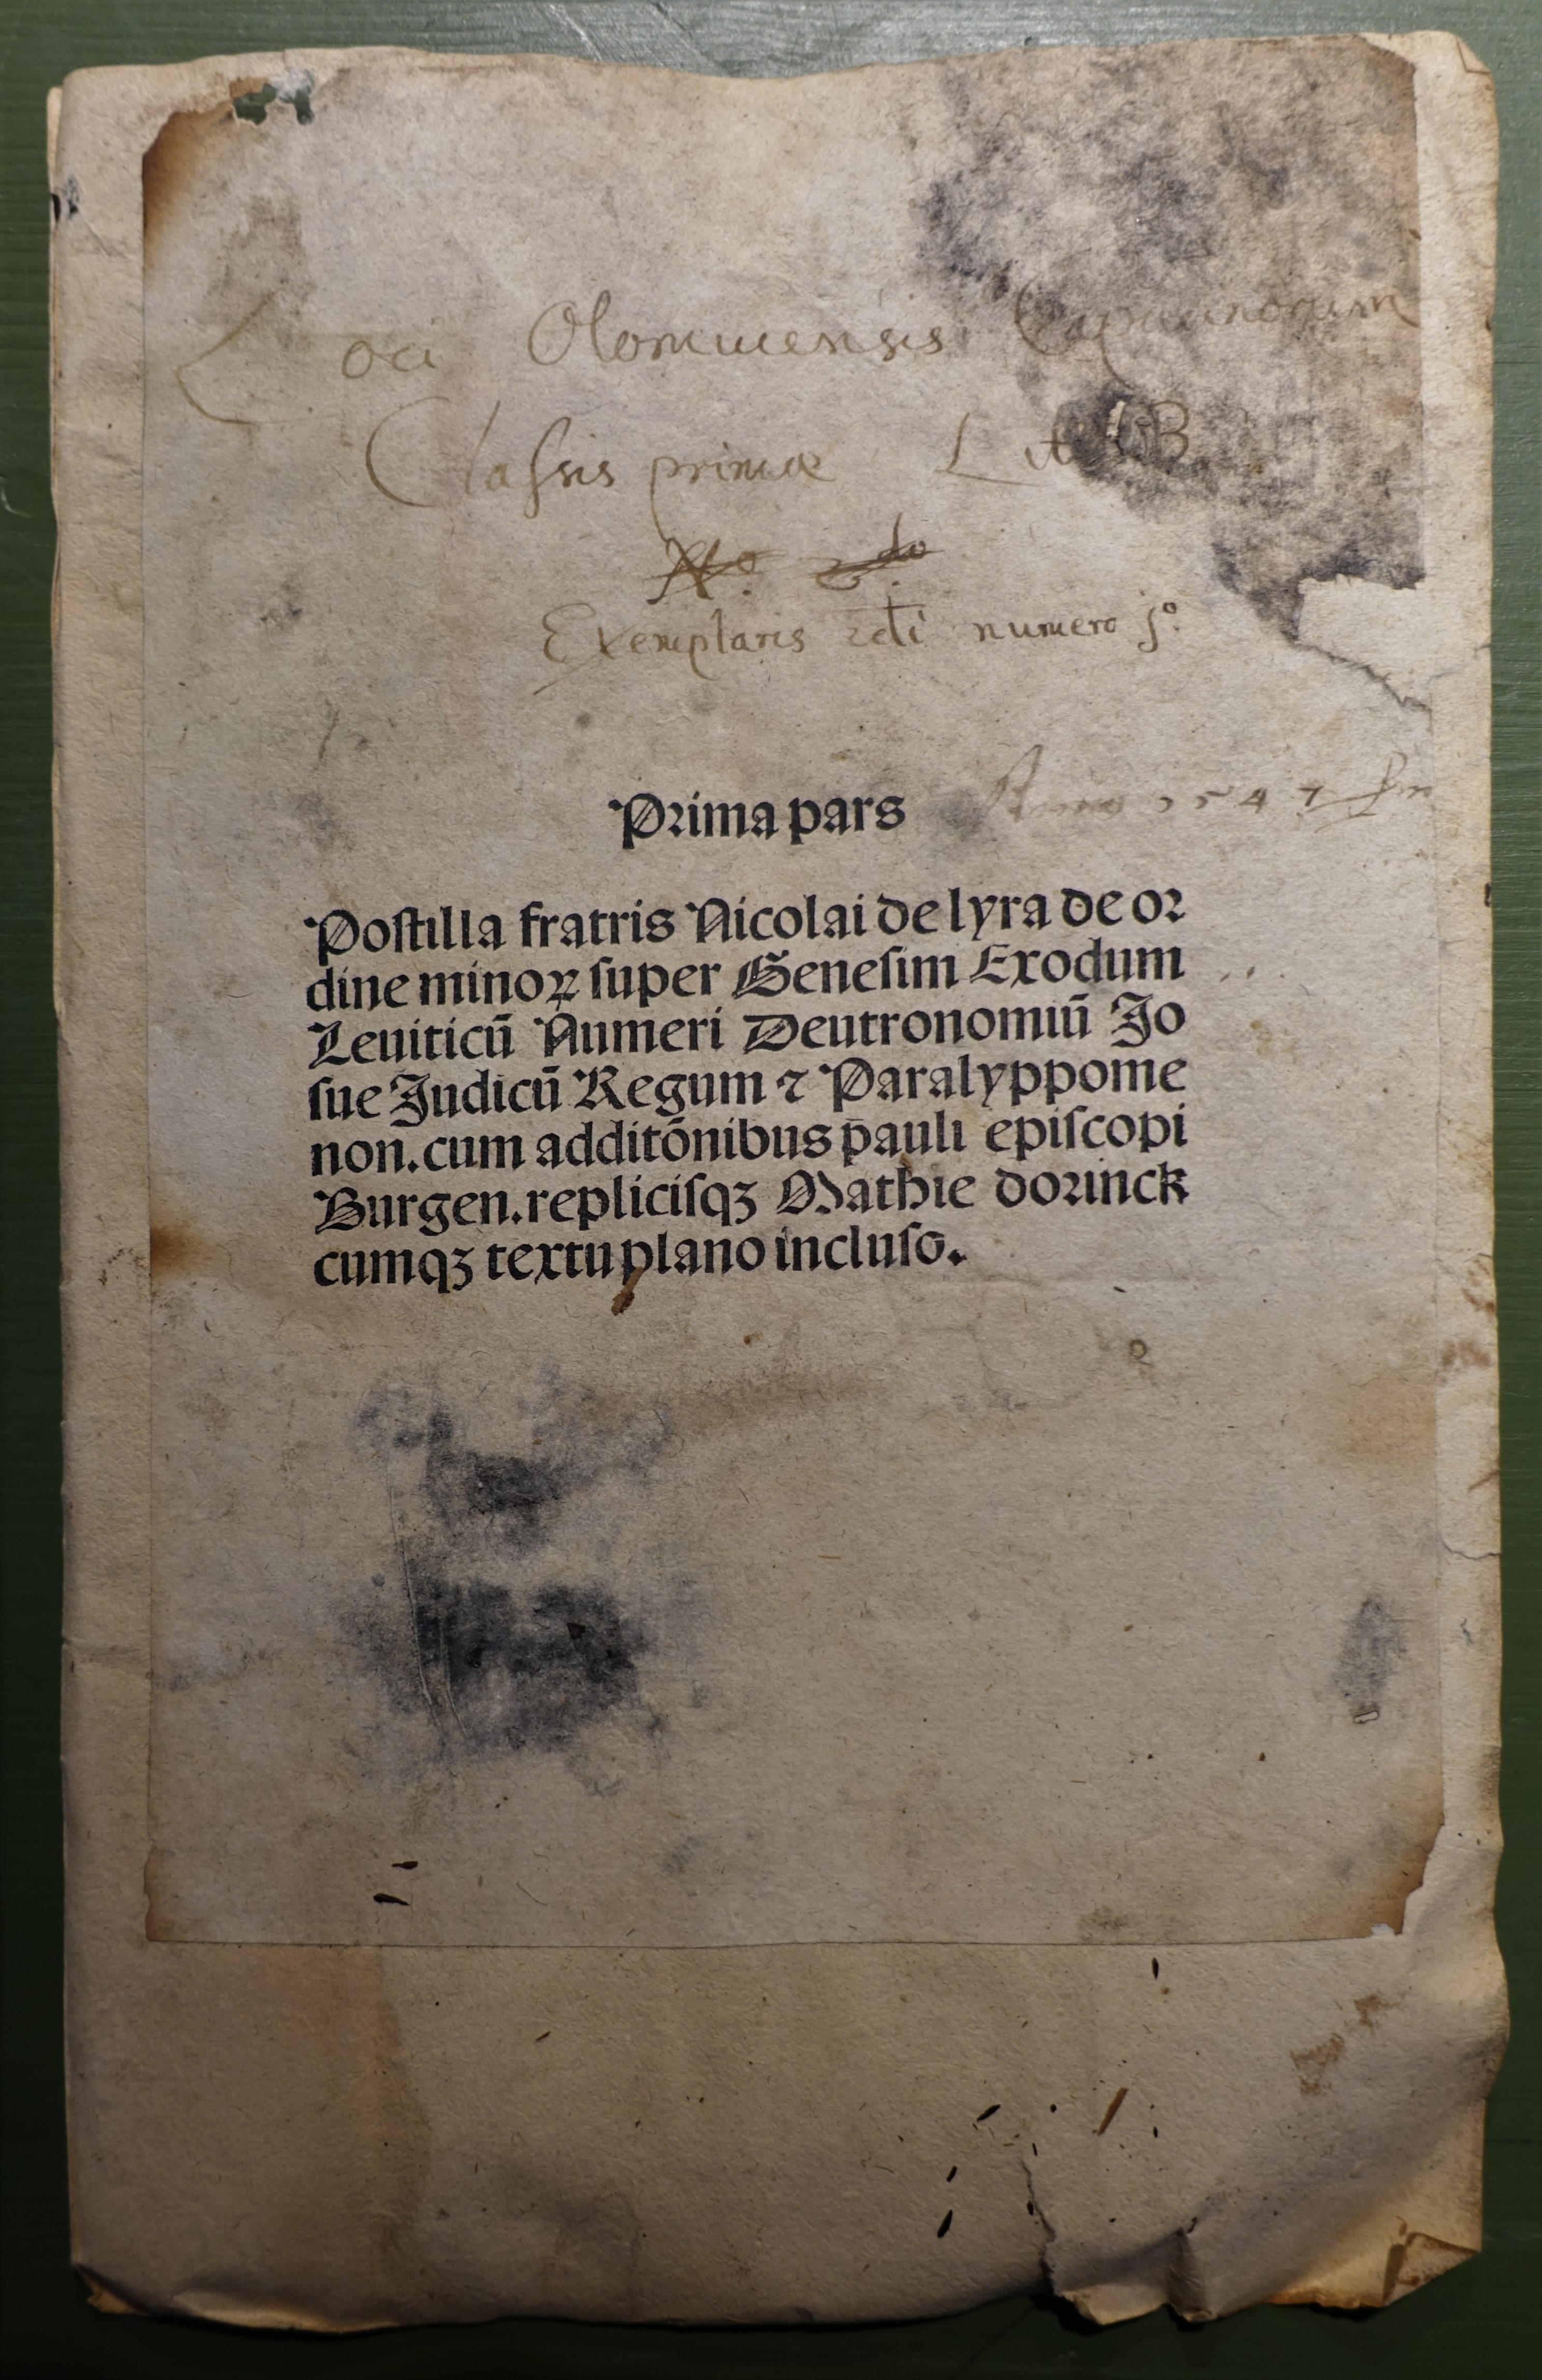 Loci Olomucensis Capucinorum
Classis primæ Lit B
No. 2do.
Exemplaris 2di numero jº.
Prima pars
Anno 1547
Postilla fratris Nicolai de lyra de or
dine minoꝝ super Genesim Exodum
Leuiticū Numeri Deutronomiū Jo
sue Judicū Regum ⁊ Paralyppome
non. cum additōnibus pauli episcopi
Burgen. replicisqꝫ Mathie dorinck
cumqꝫ textu plano incluso.